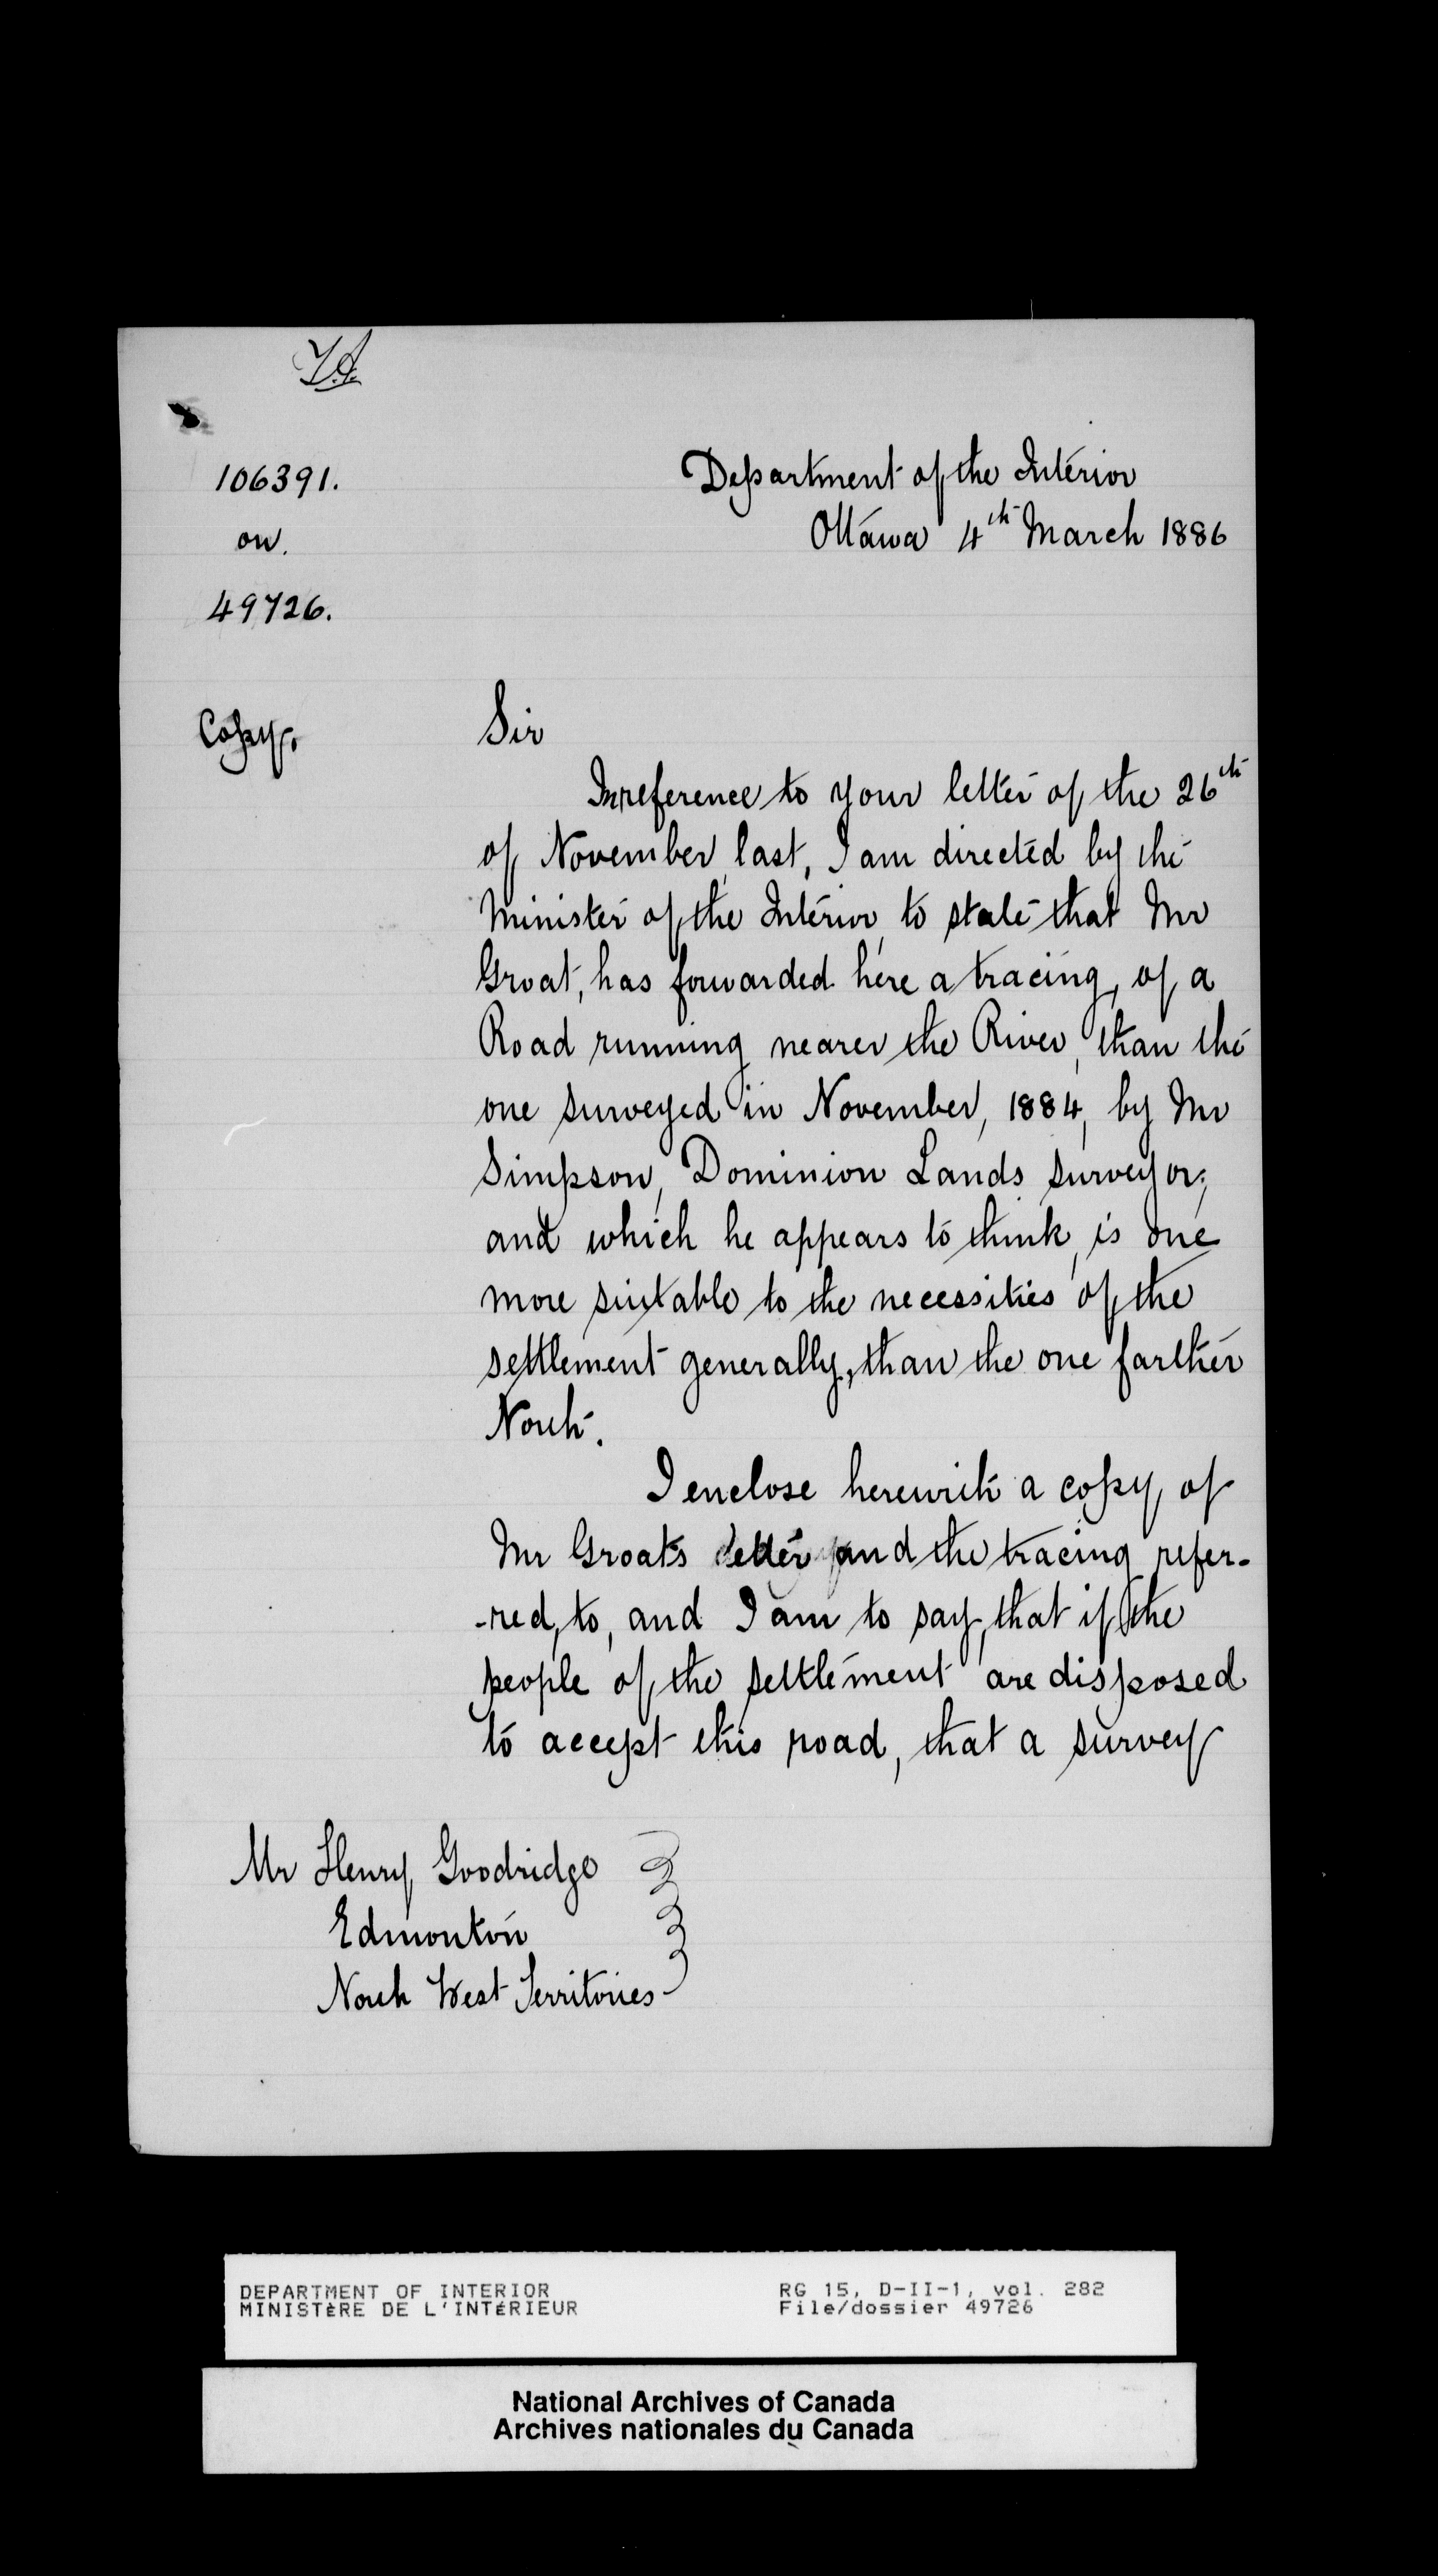 106391.
on.
49726.
Department of the Interior
Ottawa 4th March 1886
Copy.
Sir
In reference to your letter of the 26th
of November last, I am directed by the
Minister of the Interior, to state that Mr
Groat, has forwarded here a tracing, of a
Road running nearer the River, than the
one surveyed in November, 1884, by Mr
Simpson, Dominion Lands surveyor;
and which he appears to think, is one
more suitable to the necessities of the
settlement generally, than the one farther
North.
I enclose herewith a copy of
Mr Groats letter and the tracing refer-
-red, to, and I am to say, that if the
people of the settlement are disposed
to accept this road, that a survey
Mr Henry Goodridge
Edmonton
North West Territories
DEPARTMENT OF INTERIOR
MINISTÈRE DE L'INTÉRIEUR
RG 15, D-II-1, vol. 282
File/dossier 49726
National Archives of Canada
Archives nationales du Canada